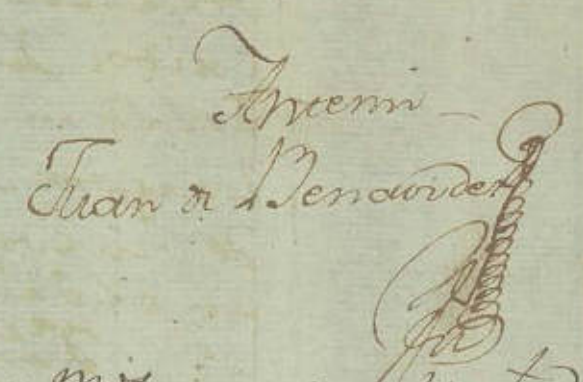 Antemi
Juan de Benavides